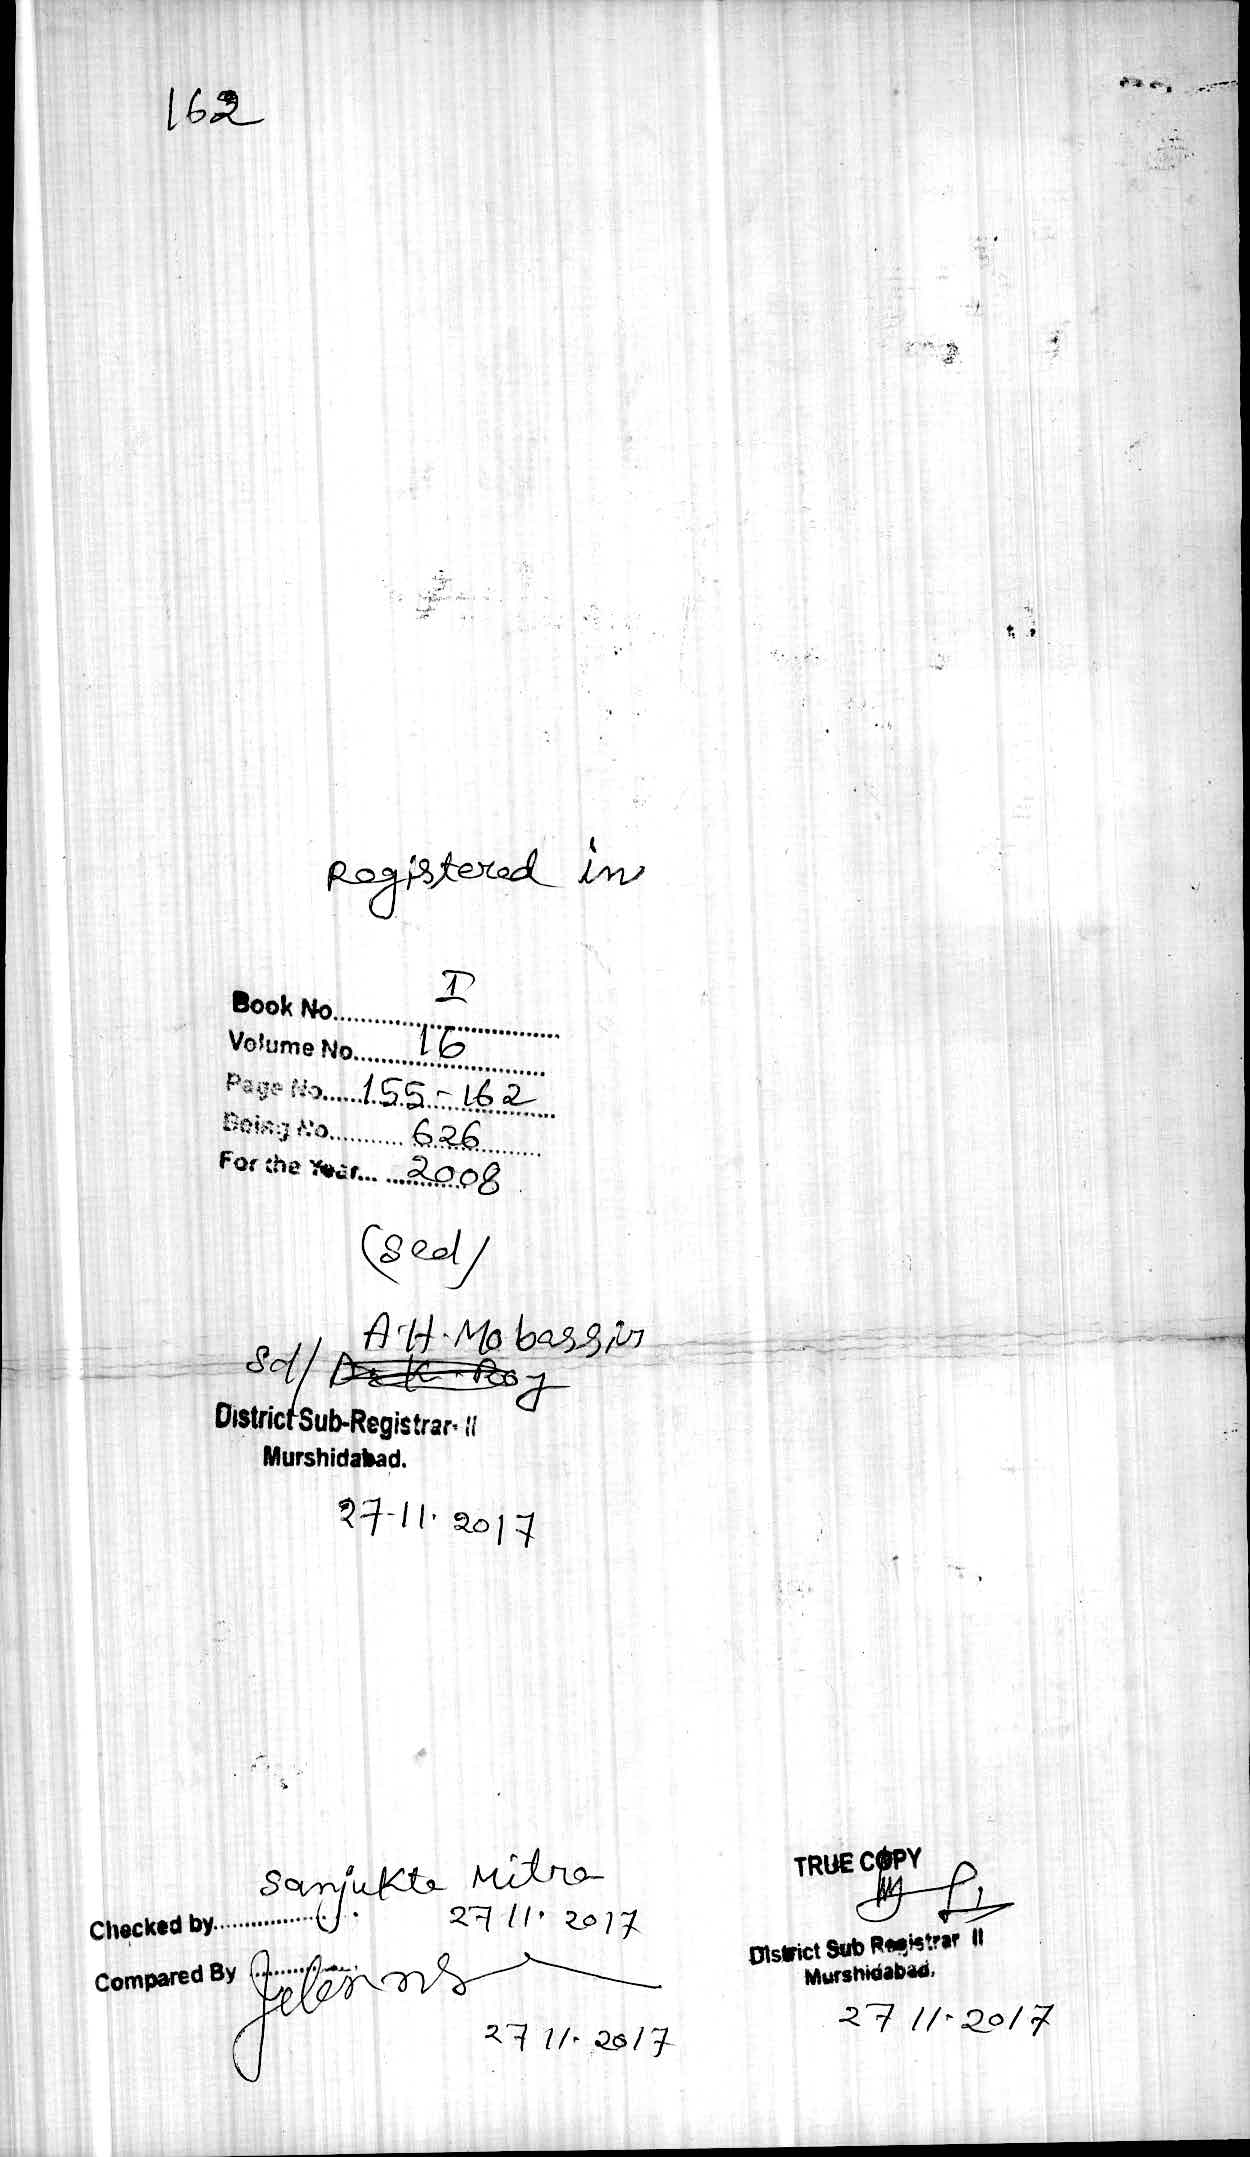 162
Registered in
Book No. I
Volume No. 16
Page No. 155-162
Being No. 626
For the Year... 2008
(Sed/
A.H. Mobassir
Sd/ D. K. Roy
District Sub-Registrar- II
Murshidabad.
27-11. 2017
Sanjukta Mitra
Checked by
27 11. 2017
Compared By
27 11. 2017
TRUE COPY
District Sub Registrar II
Murshidabad.
27 11. 2017